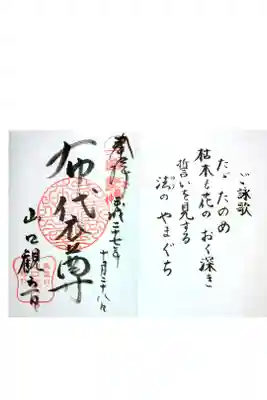 ご詠歌
たゞたのめ
枯木も花の おく深き
誓いを見する
法の やまぐち
奉拝 平成二十七年
十月二十八日
布袋尊
山口観音